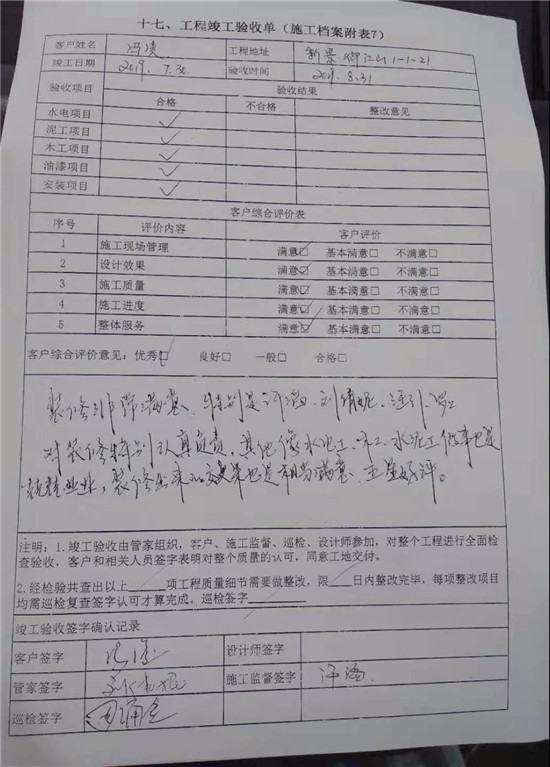 十七、工程竣工验收单（施工档案附表7）
客户姓名 冯凌 工程地址 新景 江山1-1-21
竣工日期 2019.7.30 验收时间 2019.8.31
验收项目 验收结果
合格 不合格 整改意见
水电项目 ✓
泥工项目 ✓
木工项目 ✓
油漆项目 ✓
安装项目 ✓
客户综合评价表
序号 评价内容 客户评价
1 施工现场管理 满意☑ 基本满意□ 不满意□
2 设计效果 满意☑ 基本满意□ 不满意□
3 施工质量 满意☑ 基本满意□ 不满意□
4 施工进度 满意☑ 基本满意□ 不满意□
5 整体服务 满意☑ 基本满意□ 不满意□
客户综合评价意见：优秀☑ 良好□ 一般□ 合格□
装修非常满意、特别是许海、刘倩妮、
对装修特别认真负责，其他像水电工、木工、水泥工做事也是
兢兢业业，装修出来的效果也是相当满意、五星好评。
注明：1.竣工验收由管家组织，客户、施工监督、巡检、设计师参加，对整个工程进行全面检
查验收，客户和相关人员签字表明对整个质量的认可，同意工地交付。
2.经检验共查出以上______项工程质量细节需要做整改，限____日内整改完毕，每项整改项目
均需巡检复查签字认可才算完成。巡检签字________
竣工验收签字确认记录
客户签字 设计师签字
管家签字 施工监督签字
巡检签字